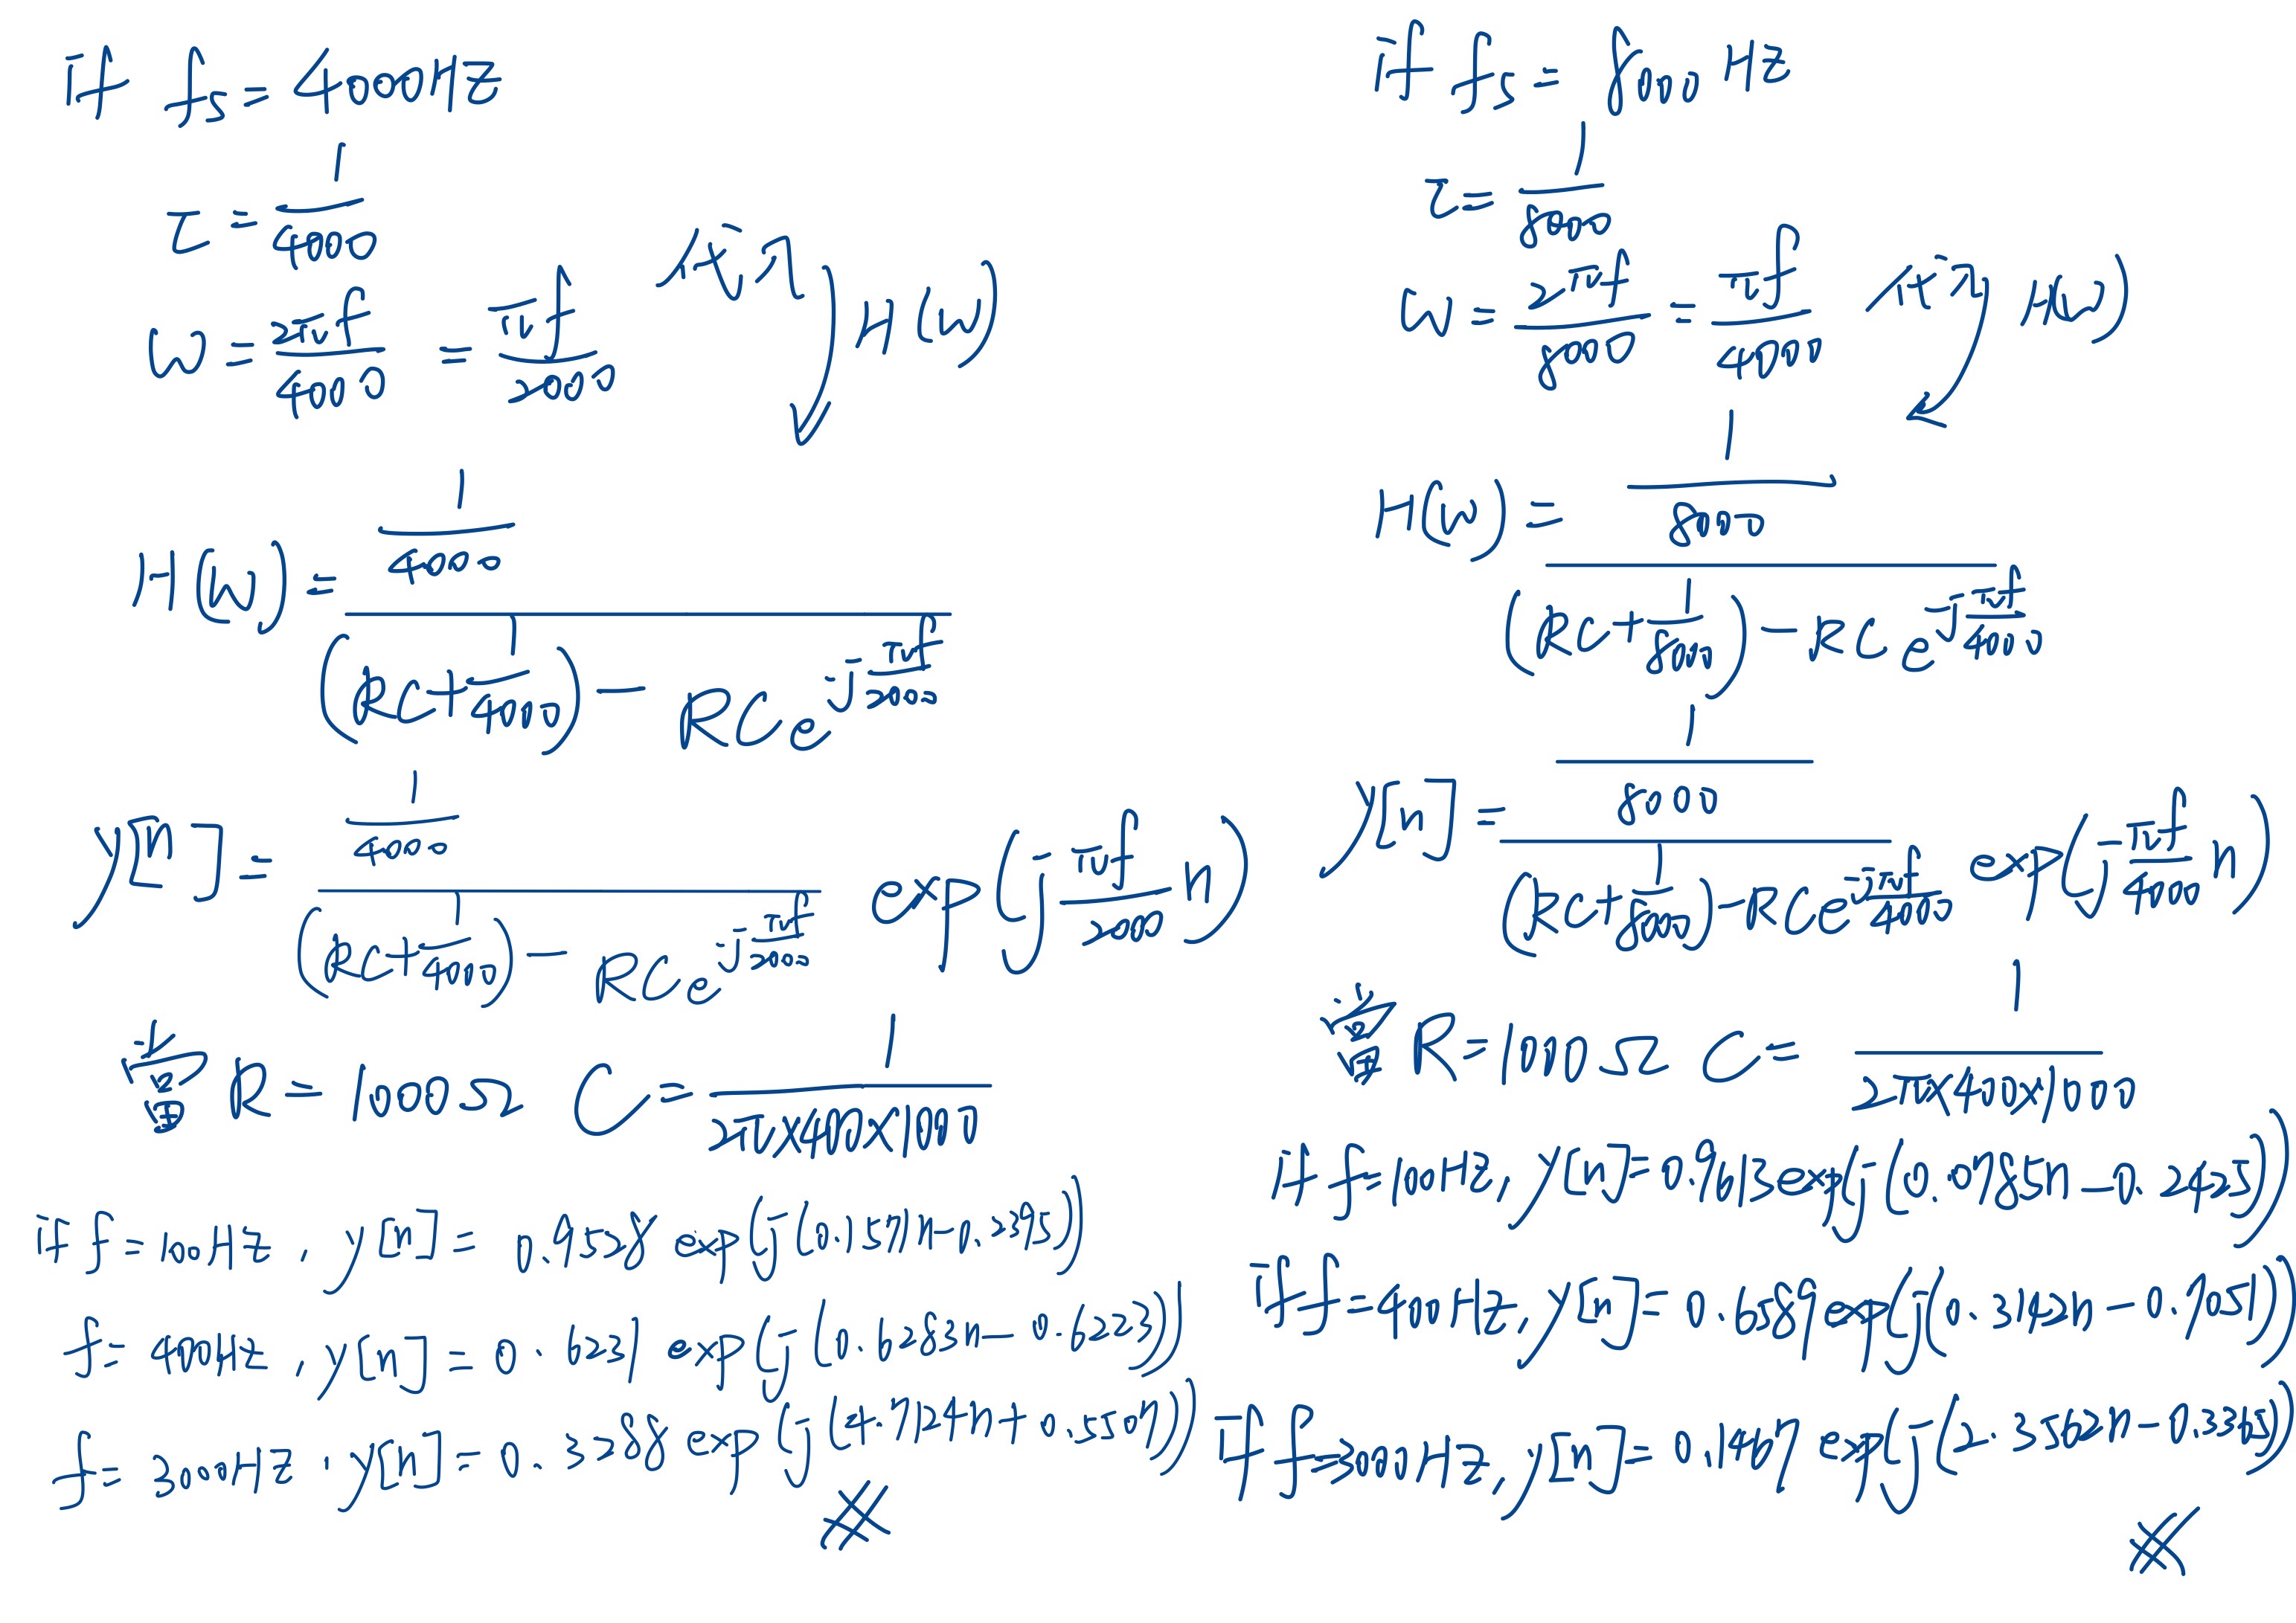 if fs = 4000Hz
τ = 1/4000
ω = 2πf/4000 = πf/2000 代入 H(ω)
H(ω) = (1/4000) / ((RC+1/4000) - RCe^(j πf/2000))
y[n] = (1/4000) / ((RC+1/4000) - RCe^(j πf/2000)) exp(j πf/2000 n)
當 R = 1000Ω C = 1/(2π×400×1000)
if f = 100Hz, y[n] = 0.9538 exp(j(0.1571n-0.2375))
f = 400Hz, y[n] = 0.6231 exp(j(0.6283n-0.6223))
f = 3000Hz, y[n] = 0.3288 exp(j(4.7124n+0.5507))
if fs = 8000Hz
τ = 1/8000
ω = 2πf/8000 = πf/4000 代入 H(ω)
H(ω) = (1/8000) / ((RC+1/8000) - RCe^(j πf/4000))
y[n] = (1/8000) / ((RC+1/8000) - RCe^(j πf/4000)) exp(j πf/4000 n)
當 R=1000Ω C = 1/(2π×400×1000)
if f=100Hz, y[n]=0.9613exp(j(0.0785n-0.2425))
if f=400Hz, y[n]=0.6589exp(j(0.3142n-0.7051))
if f=3000Hz, y[n]=0.1467exp(j(2.3562n-0.3365))